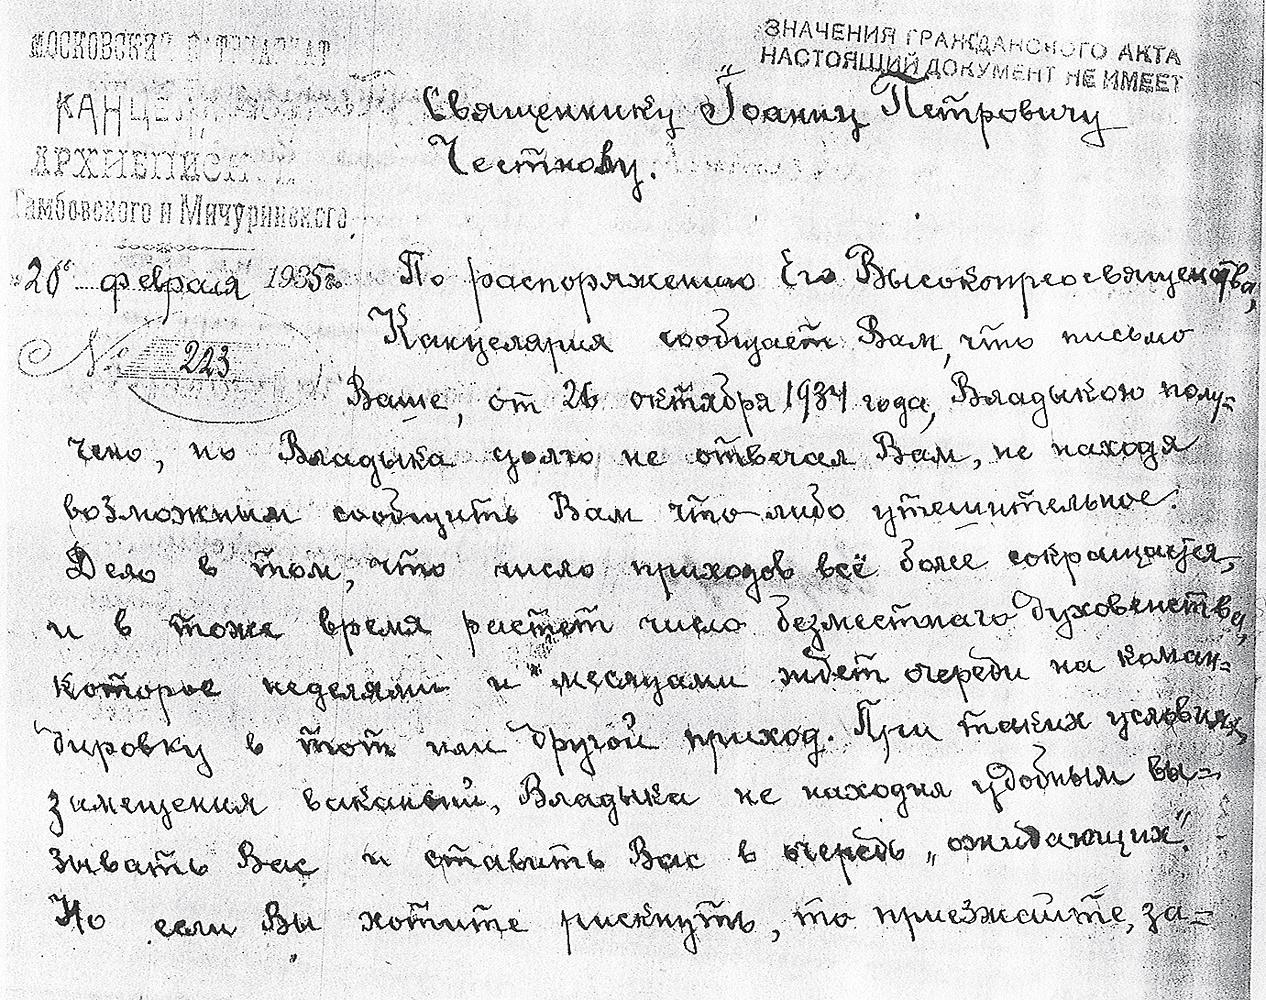 МОСКОВСКИЙ ПАТРИАРХАТ
КАНЦЕЛЯРИЯ
АРХИЕПИСКОПА
Тамбовского и Мичуринского.
"26" февраля 1935 г.
№ 223
ЗНАЧЕНИЯ ГРАЖДАНСКОГО АКТА
НАСТОЯЩИЙ ДОКУМЕНТ НЕ ИМЕЕТ
Священнику Іоанну Петровичу
Честнову.
По распоряжению Его Высокопреосвященства,
Канцелярия сообщает Вам, что письмо
Ваше, от 26 октября 1934 года, Владыкою полу=
чено, но Владыка долго не отвечал Вам, не находя
возможным сообщить Вам что-либо утешительное.
Дело в том, что число приходов всё более сокращается,
и в тоже время растет число безместнаго духовенства,
которое неделями и месяцами ждет очереди на коман=
дировку в тот или другой приход. При таких условиях
замещения вакансий, Владыка не находил удобным вы=
зывать Вас и ставить Вас в очередь „ожидающих".
Но если Вы хотите рискнуть, то приезжайте, за=